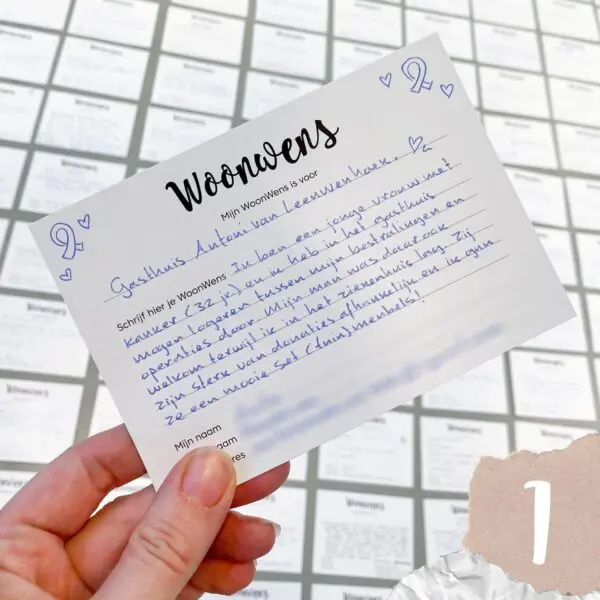 Woonwens
Mijn WoonWens is voor
Gasthuis Antoni van Leeuwenhoek.
Schrijf hier je WoonWens Ik ben een jonge vrouw met
kanker (32 jr) en ik heb in het gasthuis
mogen logeren tussen mijn bestralingen en
operaties door. Mijn man was daar ook
welkom terwijl ik in het ziekenhuis lag. Zij
zijn sterk van donaties afhankelijk en ik gun
ze een mooie set (tuin)meubels!
Mijn naam
1